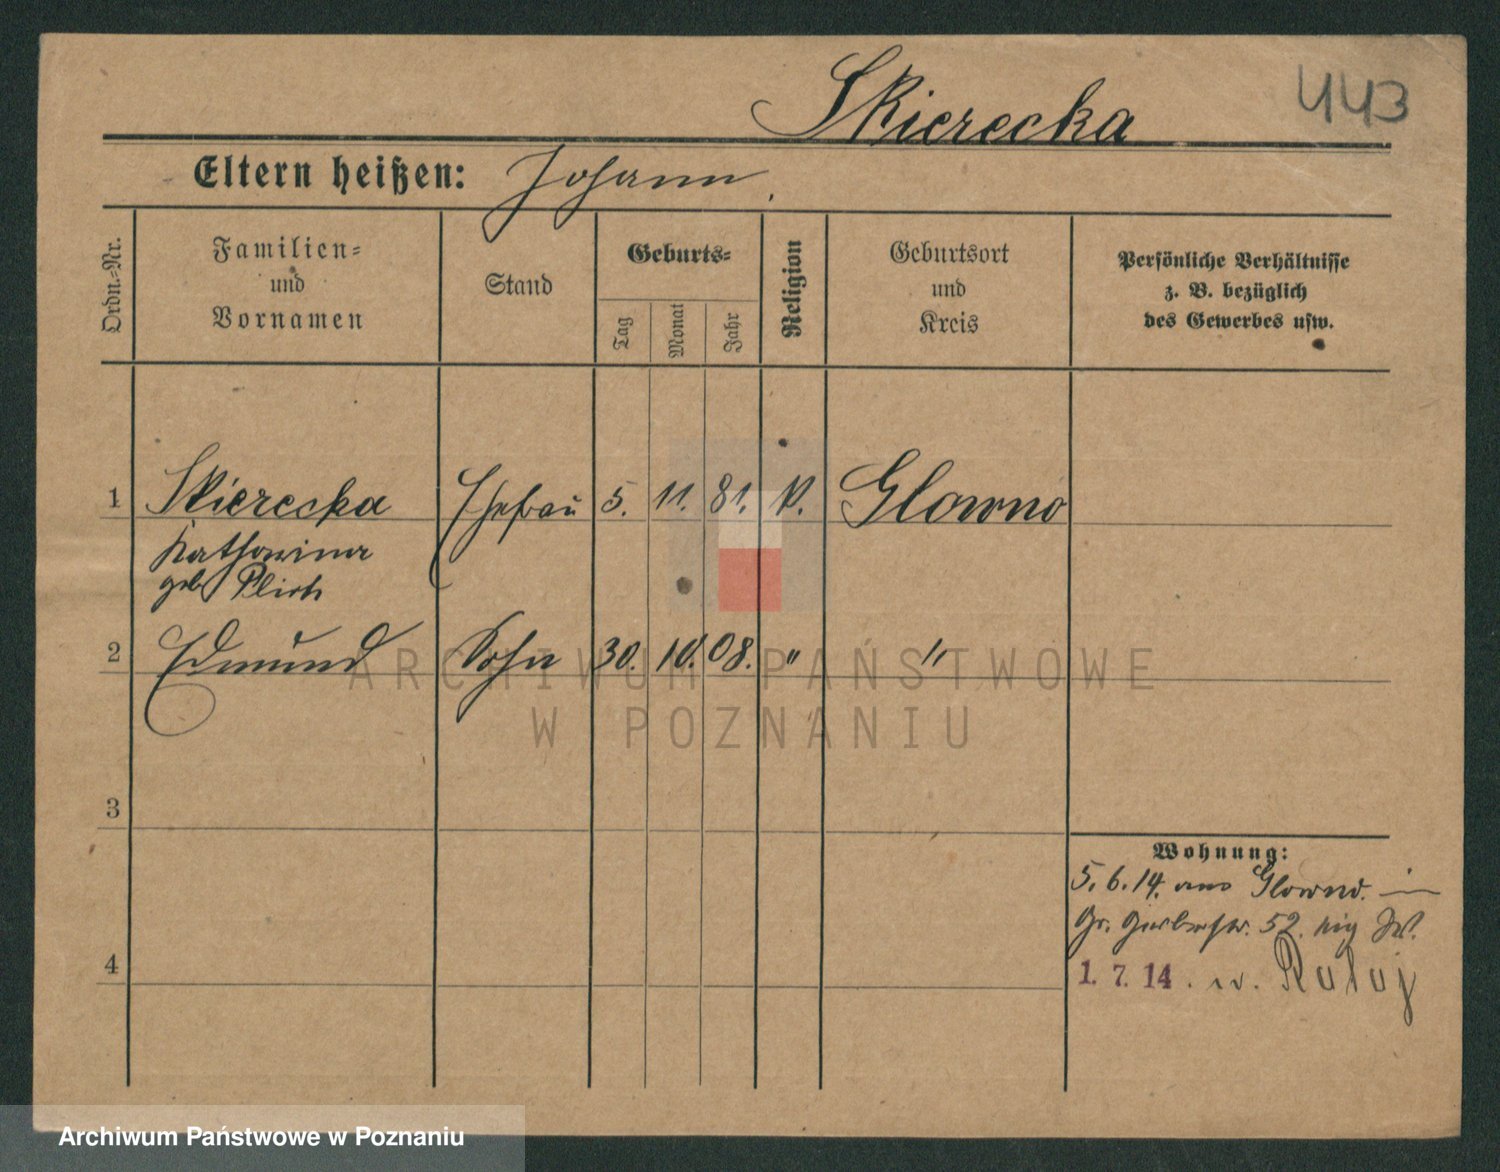 Skierecka 443
Eltern heißen: Johann
Ordn.=Nr.
Familien=
und
Vornamen
Stand
Geburts=
Tag
Monat
Jahr
Religion
Geburtsort
und
Kreis
Persönliche Verhältnisse
z. B. bezüglich
des Gewerbes usw.
1 Skierecka Ehefrau 5. 11. 81. k. Glowno
Katharina
geb
2 Edmund Sohn 30. 10. 08. " "
3
Wohnung:
5.6.14. aus Glowno. in
Gr. Gerberstr. 52.
4
1. 7. 14. Rataj
ARCHIWUM PAŃSTWOWE
W POZNANIU
Archiwum Państwowe w Poznaniu